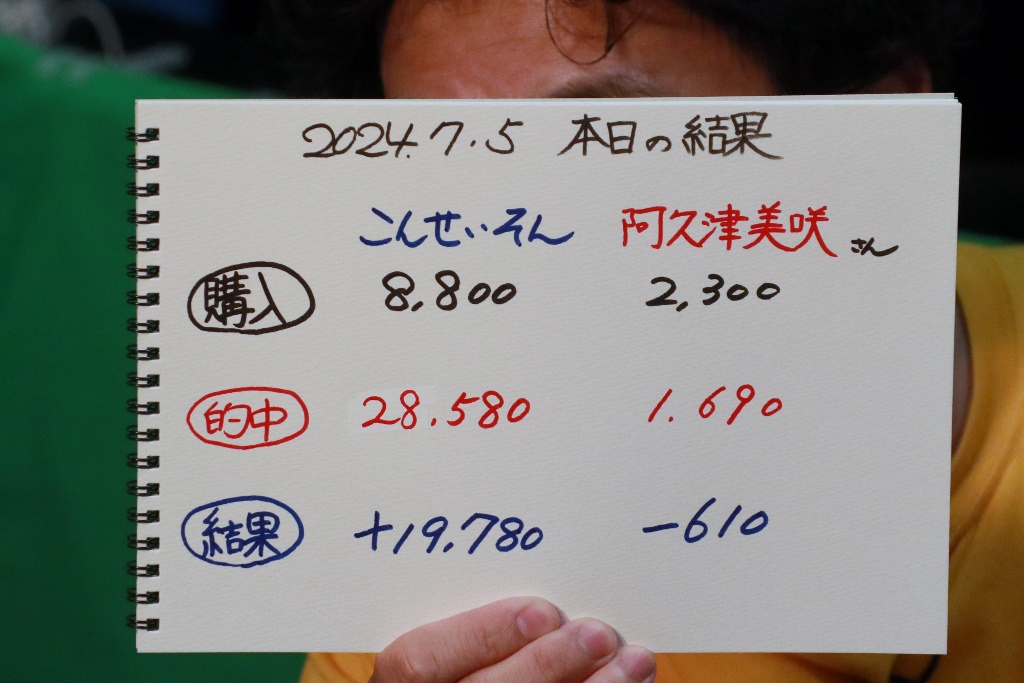 2024.7.5 本日の結果
こんせいそん 阿久津美咲さん
購入 8,800 2,300
的中 28.580 1.690
結果 +19,780 -610